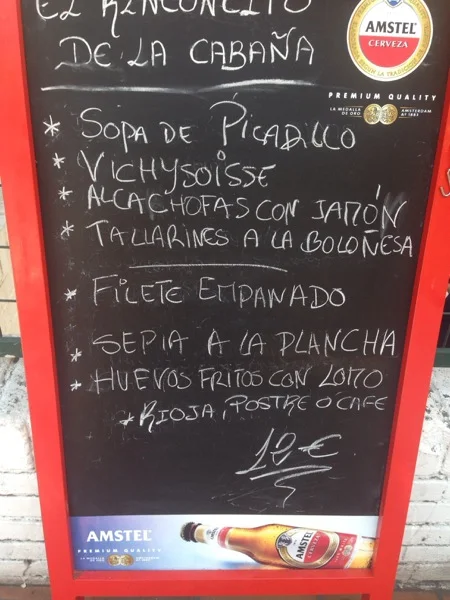 EL RINCONCITO
DE LA CABAÑA
AMSTEL
CERVEZA
PREMIUM QUALITY
LA MEDALLA DE ORO
AMSTERDAM AT 1883
* SOPA DE PICADILLO
* VICHYSOISSE
* ALCACHOFAS CON JAMÓN
* TALLARINES A LA BOLOÑESA
* FILETE EMPANADO
* SEPIA A LA PLANCHA
* HUEVOS FRITOS CON LOMO
* RIOJA, POSTRE O CAFE
12 €
AMSTEL
PREMIUM QUALITY
AMSTEL
CERVEZA